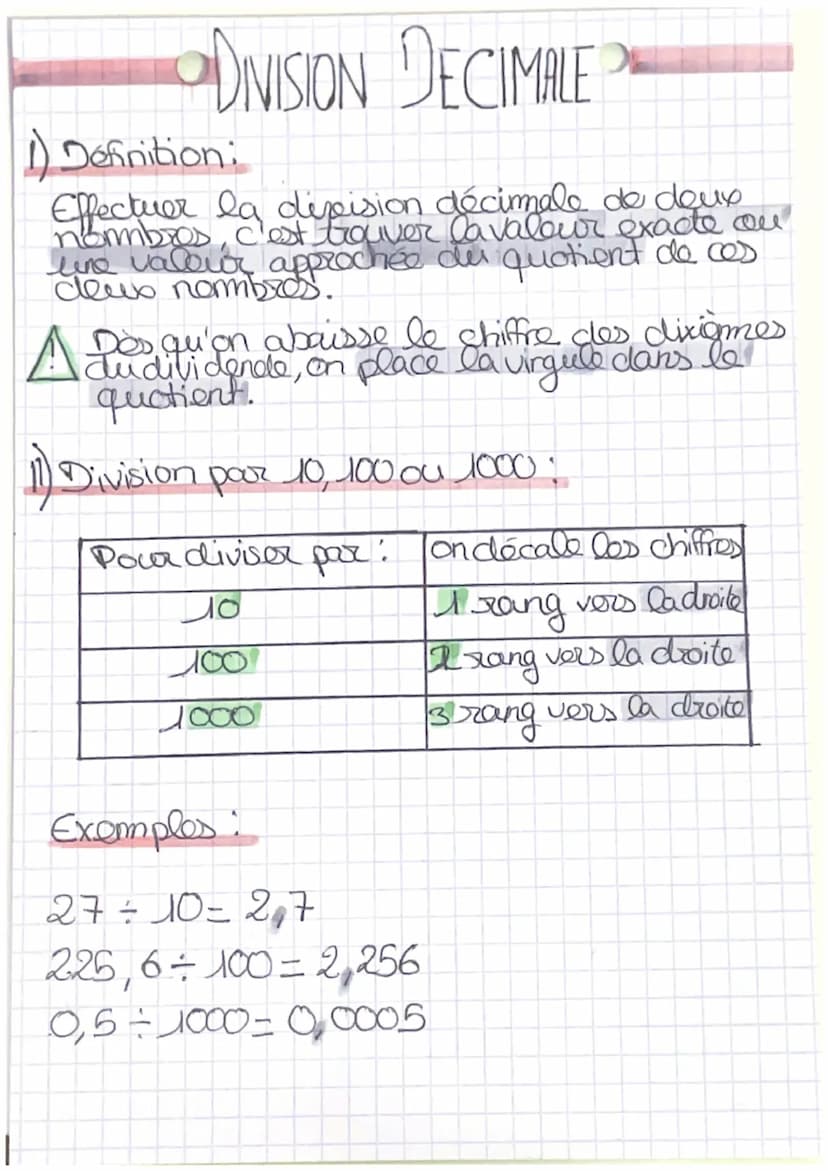 DIVISION DECIMALE
I) Définition:
Effectuer la division décimale de deux
nombres, c'est trouver la valeur exacte ou
une valeur approchée du quotient de ces
deux nombres.
Dès qu'on abaisse le chiffre des dixièmes
du dividende, on place la virgule dans le
quotient.
II) Division par 10, 100 ou 1000:
Pour diviser par: on décale les chiffres
10 1 rang vers la droite
100 2 rang vers la droite
1000 3 rang vers la droite
Exemples:
27 ÷ 10 = 2,7
225,6 ÷ 100 = 2,256
0,5 ÷ 1000 = 0,0005